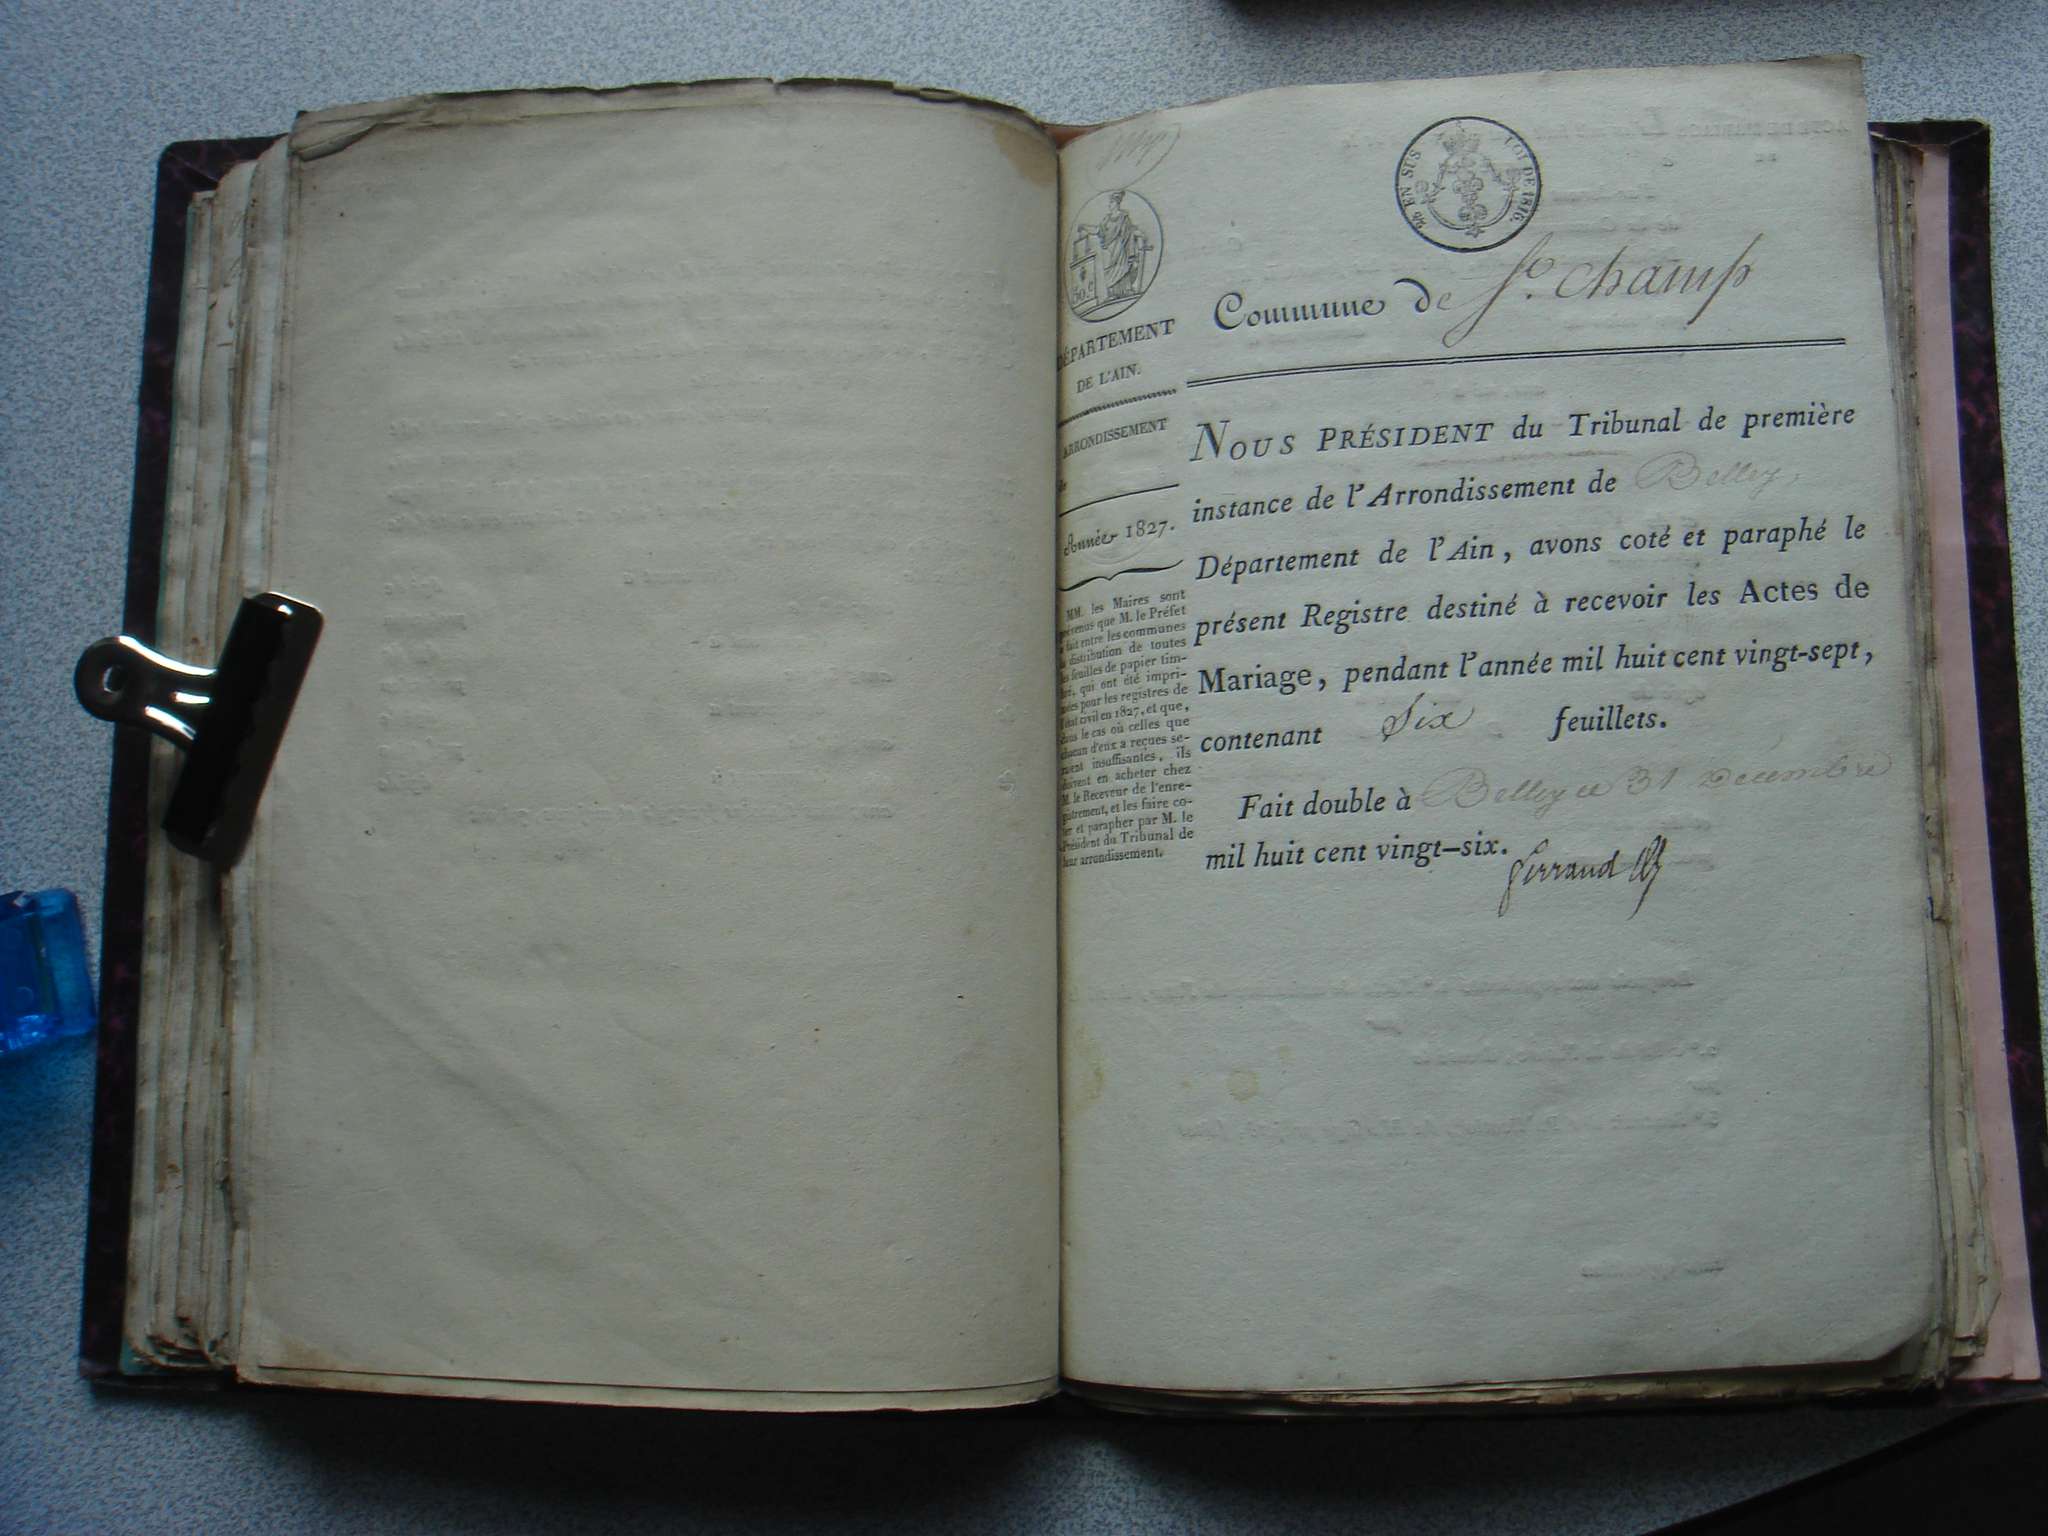 EN SUS
LOI DE 1816.
50.c
Commune de St. champ
DÉPARTEMENT
DE L'AIN.
ARRONDISSEMENT
de
Année 1827.
MM. les Maires sont
prévenus que M. le Préfet
a fait entre les communes
la distribution de toutes
les feuilles de papier tim-
bré, qui ont été impri-
mées pour les registres de
l'état civil en 1827, et que,
dans le cas où celles que
chacun d'eux a reçues se-
raient insuffisantes, ils
doivent en acheter chez
M. le Receveur de l'enre-
gistrement, et les faire co-
ter et parapher par M. le
Président du Tribunal de
leur arrondissement.
NOUS PRÉSIDENT du Tribunal de première
instance de l'Arrondissement de Belley,
Département de l'Ain, avons coté et paraphé le
présent Registre destiné à recevoir les Actes de
Mariage, pendant l'année mil huit cent vingt-sept,
contenant Six feuillets.
Fait double à Belley ce 31 Décembre
mil huit cent vingt-six.